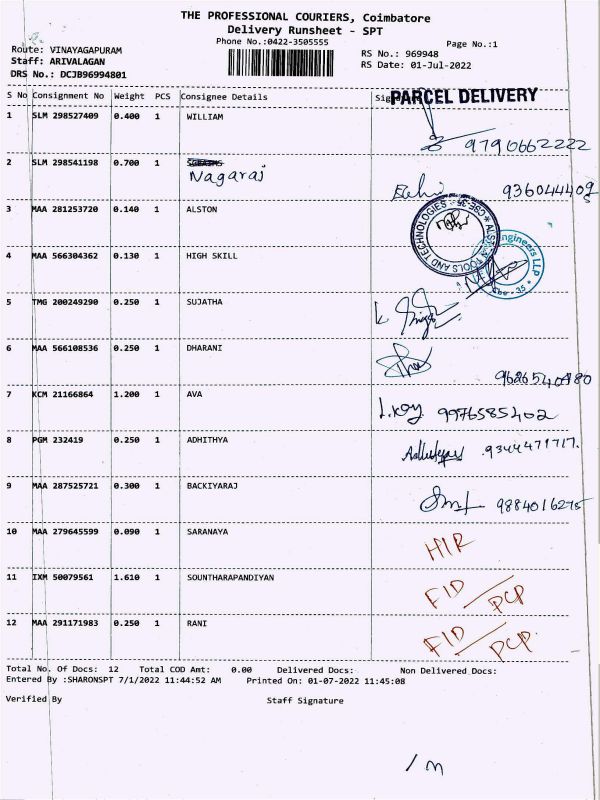 THE PROFESSIONAL COURIERS, Coimbatore
Delivery Runsheet - SPT
Phone No.:0422-3505555
Page No.:1
Route: VINAYAGAPURAM
Staff: ARIVALAGAN
DRS No.: DCJB96994801
RS No.: 969948
RS Date: 01-Jul-2022
PARCEL DELIVERY
S No Consignment No Weight PCS Consignee Details
1 SLM 298527409 0.400 1 WILLIAM 9790662222
2 SLM 298541198 0.700 1 Nagaraj 9360444409
3 MAA 281253720 0.140 1 ALSTON
TOOLS AND TECHNOLOGIES
4 MAA 566304362 0.130 1 HIGH SKILL
Engineers LLP
5 TMG 200249290 0.250 1 SUJATHA
6 MAA 566108536 0.250 1 DHARANI 9626540980
7 KCM 21166864 1.200 1 AVA 9976585402
8 PGM 232419 0.250 1 ADHITHYA 9344471717.
9 MAA 287525721 0.300 1 BACKIYARAJ 9884016275
10 MAA 279645599 0.090 1 SARANAYA
11 IXM 50079561 1.610 1 SOUNTHARAPANDIYAN FID / PCP
12 MAA 291171983 0.250 1 RANI FID / PCP
Total No. Of Docs: 12 Total COD Amt: 0.00 Delivered Docs: Non Delivered Docs:
Entered By :SHARONSPT 7/1/2022 11:44:52 AM Printed On: 01-07-2022 11:45:08
Verified By Staff Signature